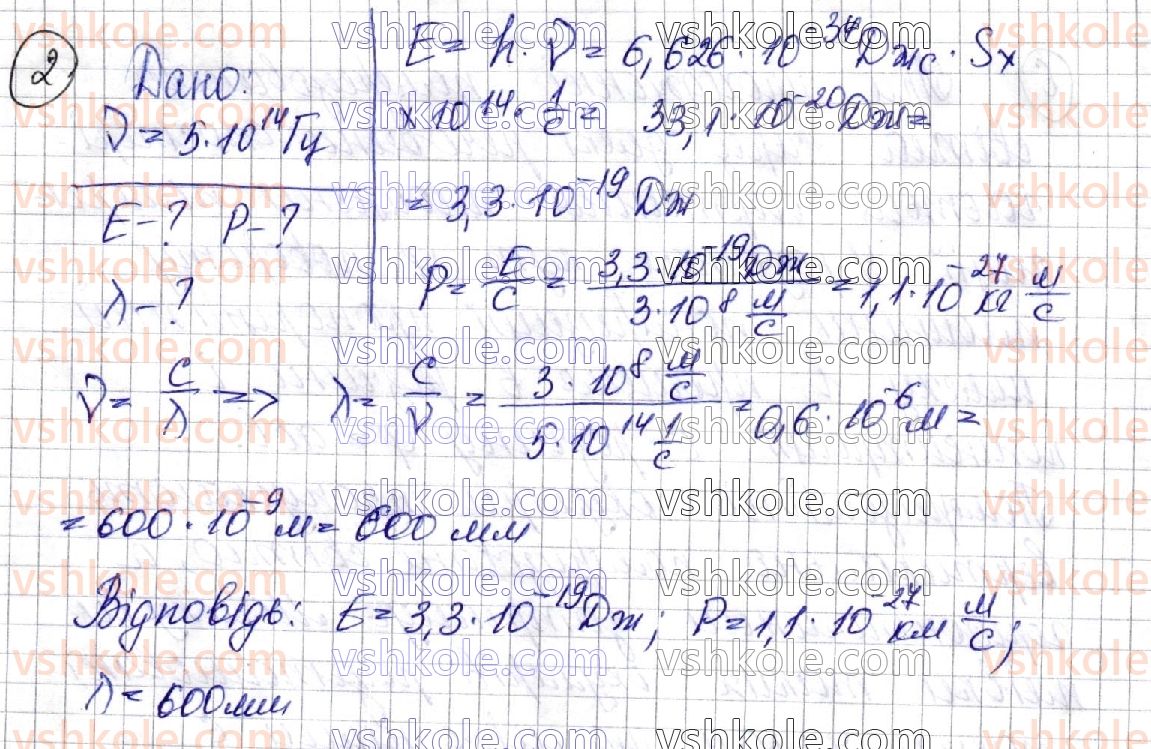 2
Дано:
ν = 5·10¹⁴ Гц
E - ? P - ?
λ - ?
E = h · ν = 6,626 · 10⁻³⁴ Джс · 5 x
x 10¹⁴ · 1/c = 33,1 · 10⁻²⁰ Дж =
= 3,3 · 10⁻¹⁹ Дж
P = E/c = 3,3 · 10⁻¹⁹ Дж / 3 · 10⁸ м/с = 1,1 · 10⁻²⁷ кг м/с
ν = c/λ => λ = c/ν = 3 · 10⁸ м/с / 5 · 10¹⁴ 1/с = 0,6 · 10⁻⁶ м =
= 600 · 10⁻⁹ м = 600 мм
Відповідь: E = 3,3 · 10⁻¹⁹ Дж; P = 1,1 · 10⁻²⁷ км м/с;
λ = 600 мм
vshkole.com